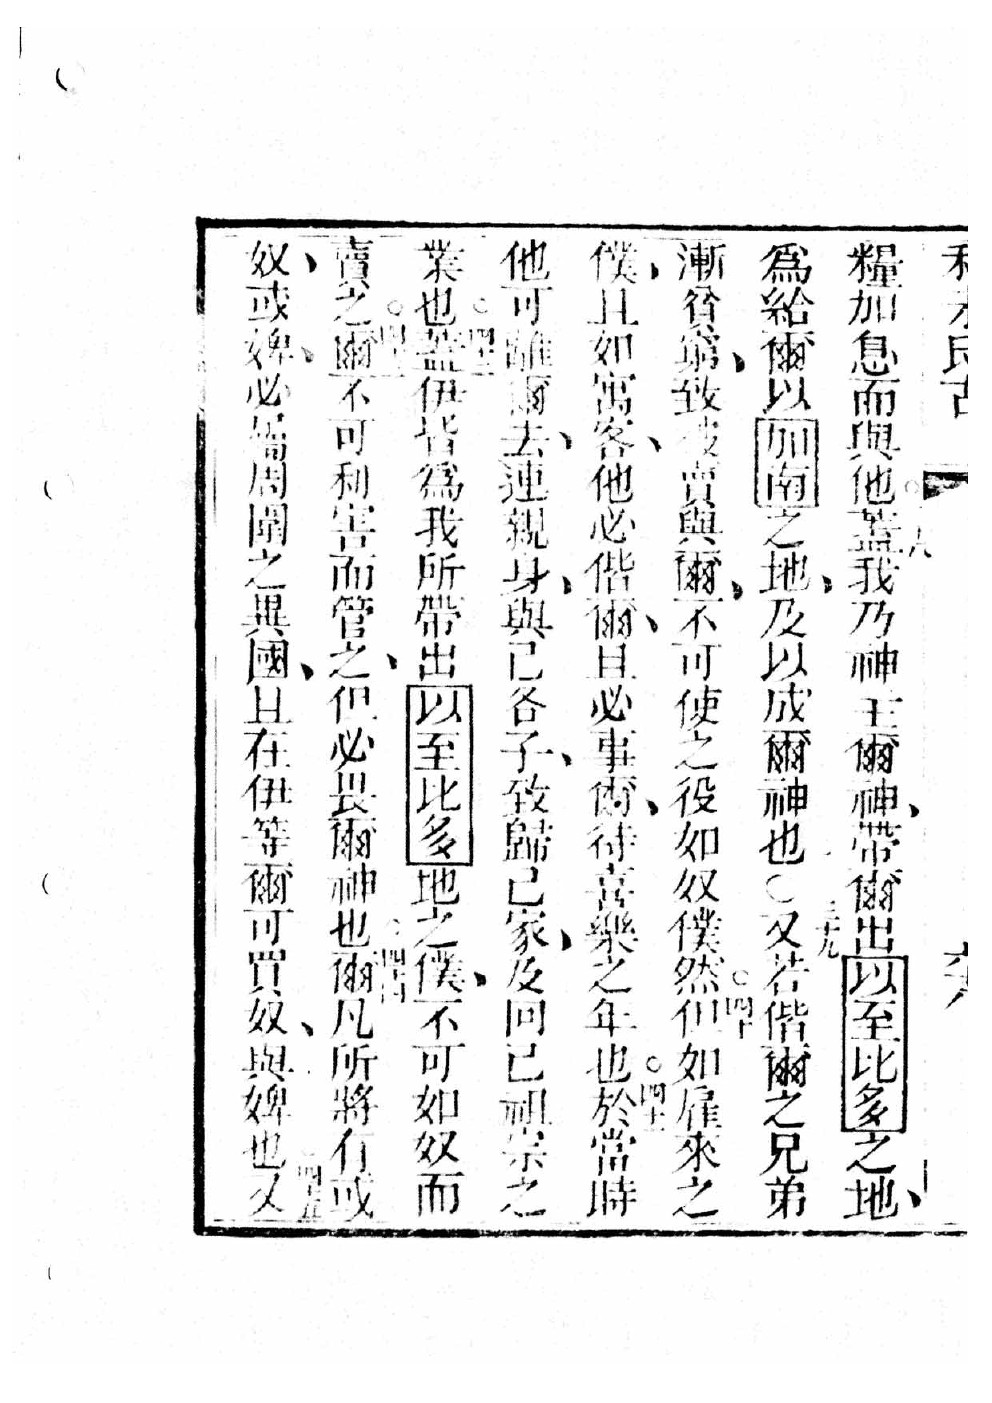 糧加息而與他蓋我乃神主爾神、帶爾出以至比多之地、
為給爾以加南之地、及以成爾神也○又若偕爾之兄弟
漸貧窮、致被賣與爾、不可使之役如奴僕然但如雇來之
僕、且如寓客、他必偕爾、且必事爾、待喜樂之年也於當時
他可離爾去、連親身、與己各子、致歸己家、及回己祖宗之
業也蓋伊皆為我所帶出以至比多地之僕、不可如奴而
賣之爾不可利害而管之、但必畏爾神也爾凡所將有或
奴、或婢、必屬周圍之異國、且在伊等爾可買奴、與婢也又